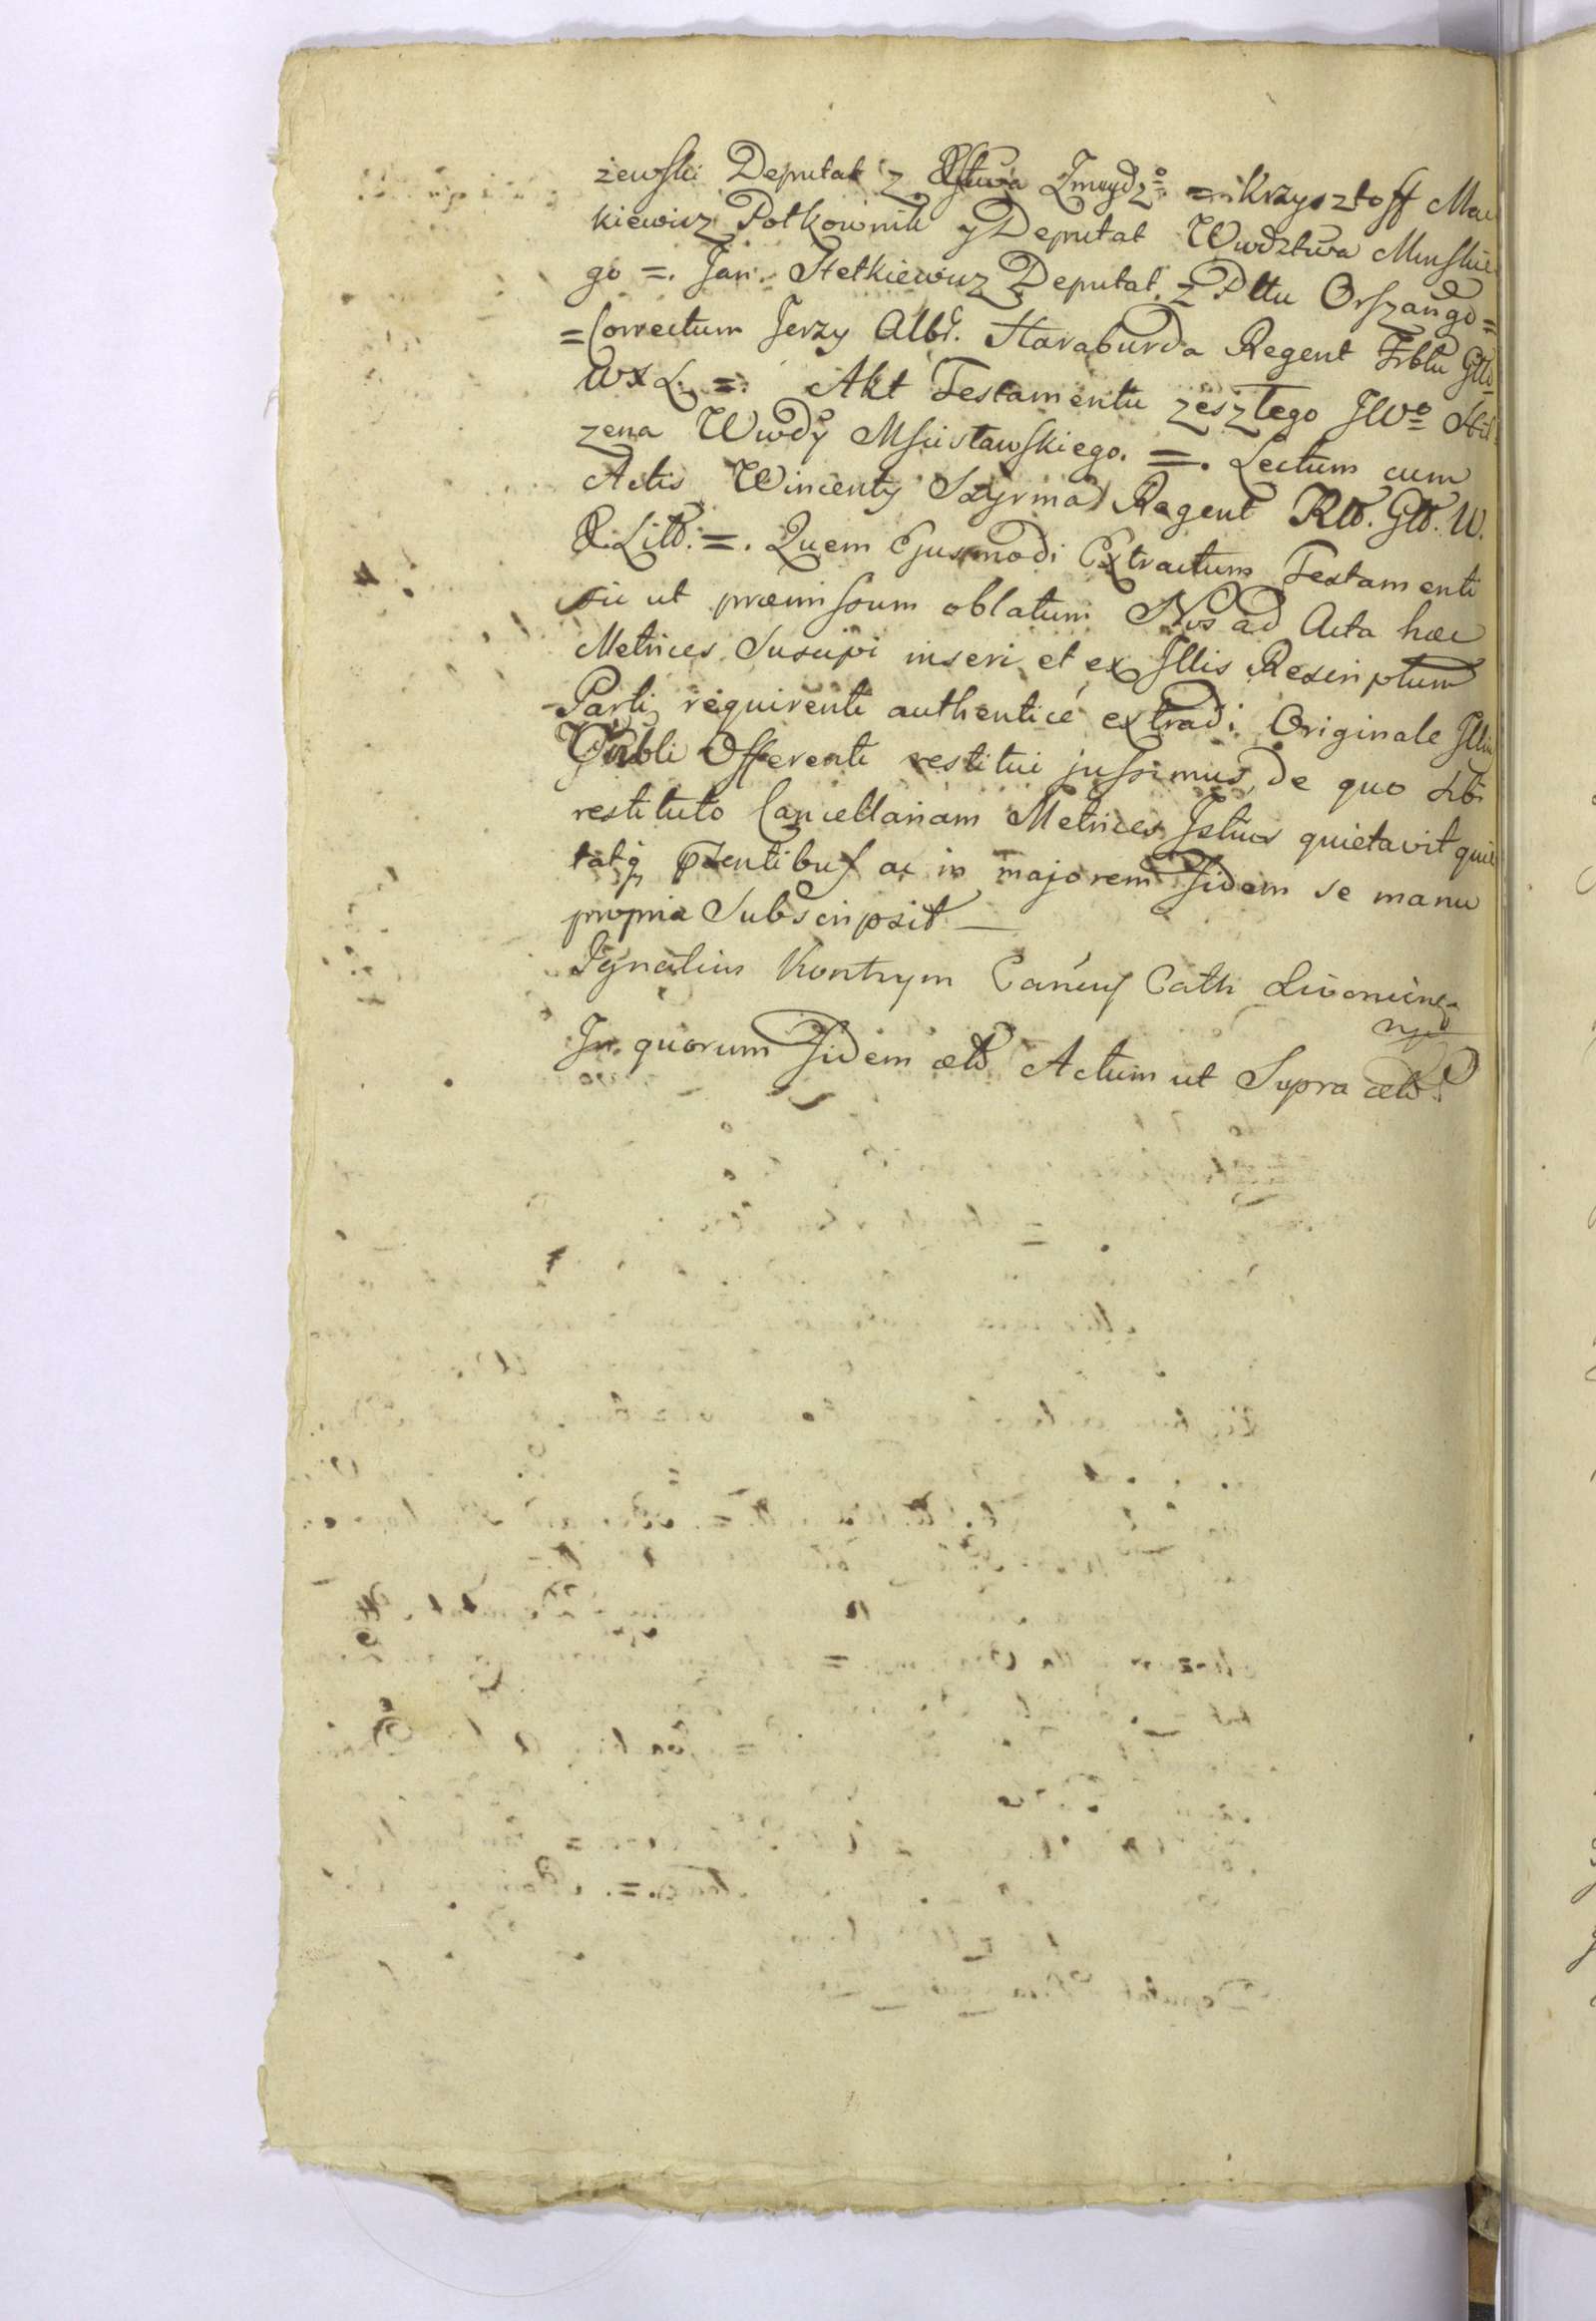 żewski Deputat z Xstwa Zmudzº = Krzysztoff Mac
kiewicz Połkownik y Deputat Wwdztwa Minskie
go =. Jan Hetkiewicz Deputat z Pttu Orszango =
= Correctum Jerzy Albr. Haraburda Regent Trbłu Głł
W X L. =. Akt Testamentu zeszłego JWº
zena Wwdy Mscisławskiego. =. Lectum cum
Actis Wincenty Szyrma Regent Głł. W.
X. Litt. =. Quem Ejusmodi Extractum Testamenti
sic ut præmissum oblatum Nos ad Acta hæc
Metrices Suscipi inseri et ex Illis Rescriptum
Parti requirenti authenticé extradi Originale
Offerenti restitui jussimus, de quo sibi
restituto Cancellariam Metrices Istius quietavit quie
tatq. pntibus ac in majorem Fidem se manu
propria Subscripsit —
Ignatius Kontrym Canćus Cath Livonien
mp
In quorum Fidem ettt Actum ut Supra ettt